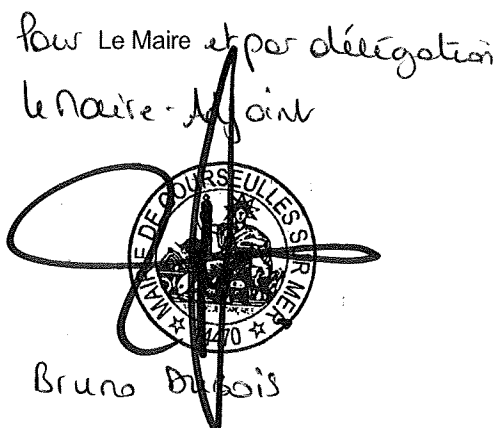 Pour Le Maire et par délégation
le Maire-Adjoint
MAIRIE DE COURSEULLES SUR MER
14470
Bruno Dubois